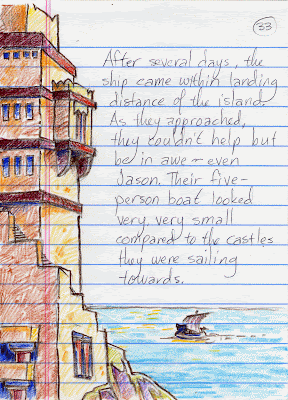 33
After several days, the
ship came within landing
distance of the island.
As they approached,
they couldn't help but
be in awe — even
Jason. Their five-
person boat looked
very, very small
compared to the castles
they were sailing
towards.